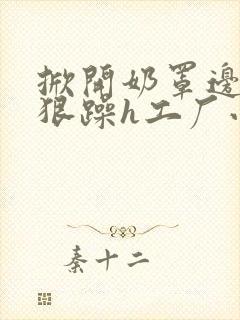 掀開奶罩邊
狠躁h工厂小
秦十二